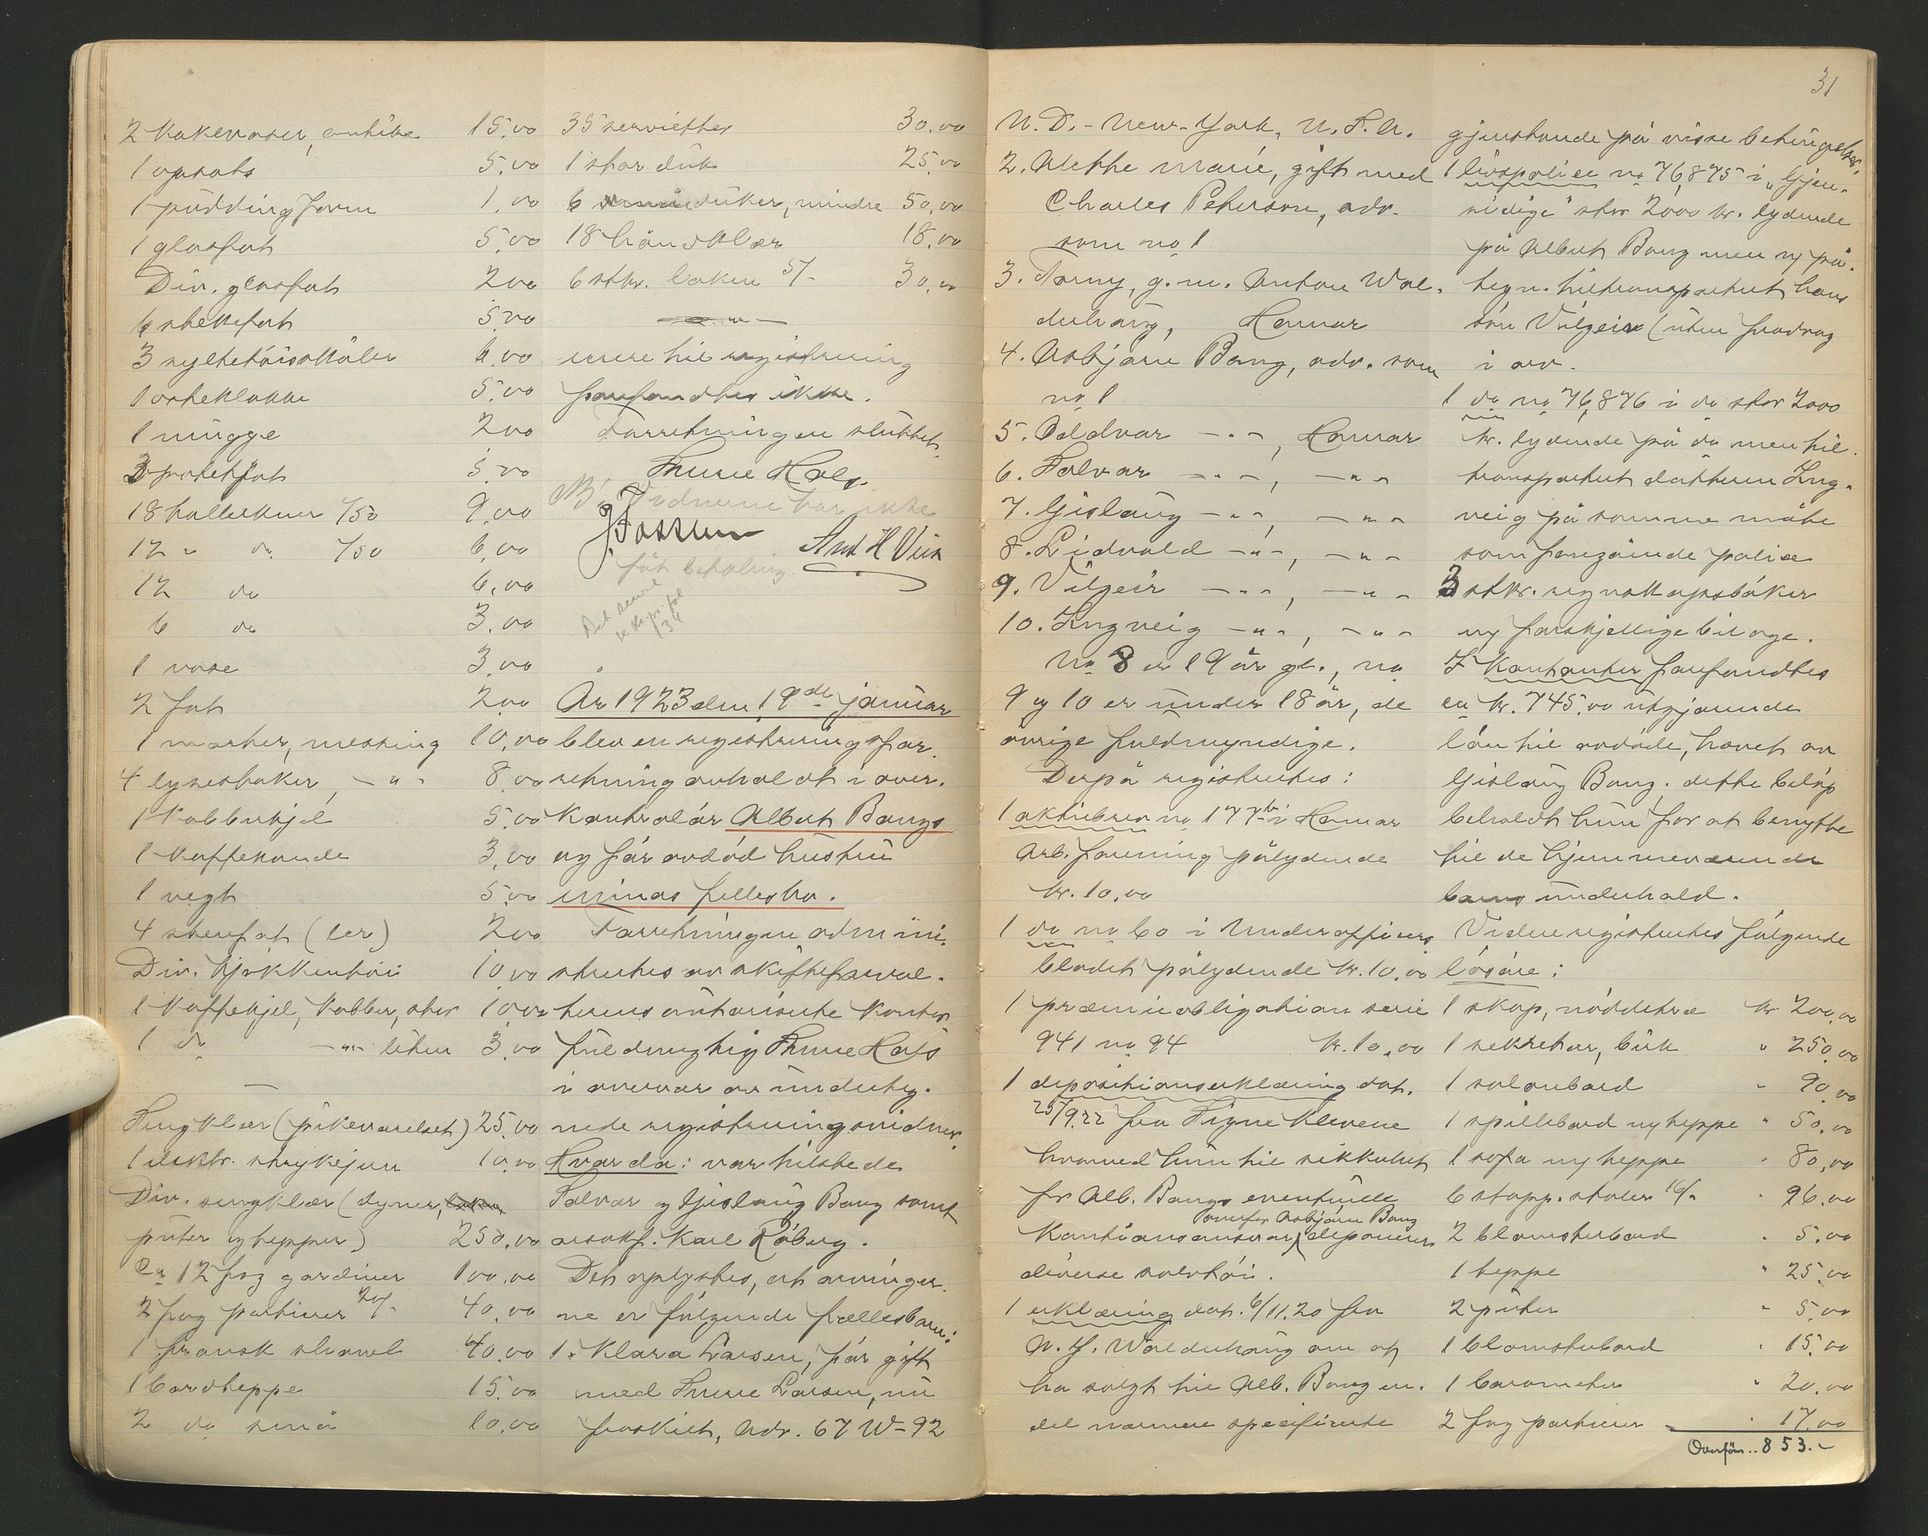 2 kakevaser, antike 15,00
1 opsats 5,00
1 puddingform 1,00
1 glasfat 5,00
Div. glasfat 2,00
6 stekefat 5,00
3 syltetöisskåler 6,00
1 osteklokke 5,00
1 mugge 2,00
3 posteifat 5,00
18 tallerkner /50 9,00
12 " do /50 6,00
12 do 6,00
6 do 3,00
1 vase 3,00
2 fat 2,00
1 morter, messing 10,00
4 lysestaker, -"- 8,00
1 kobberkjel 5,00
1 kaffekande 3,00
1 vegt 5,00
4 stenfat (ler) 2,00
Div. kjökkentöi 10,00
1 kaffekjel, kobber, stor 10,00
1 do -"- liten 3,00
Sengklær (pikeværelset) 25,00
1 elektr. strykejern 10,00
Div. sengklær (dyner,
puter og tepper) 250,00
Ca 12 fag gardiner 100,00
2 fag portierer 20/- 40,00
1 fransk shavl 40,00
1 bordteppe 15,00
2 do små 10,00
35 servietter 30,00
1 stor duk 25,00
6 duker, mindre 50,00
18 håndklær 18,00
6 stkr. laken 5/- 30,00
-"-
mere til registrering
forefandtes ikke.
Forretningen sluttet.
Thure Hals.
NB. Vidnerne har ikke
J Fossum
fåt betaling.
And H Vik
Det senere
se kopi fol
134
År 1923 den 19de januar
blev en registreringsfor-
retning avholdt i over-
kontrolör Albert Bangs
og för avdöd hustru
Minas fellesbo.
Forretningen admini-
strertes av skifteforval-
terens autoriserte kontor-
fuldmægtig Thure Hals
i overvær av underteg-
nede registreringsvidner.
Hvorda: var tilstede
Salvor og Gislaug Bang samt
orsakf. Karl Röberg.
Det oplystes, at arvinger-
ne er fölgende fællesbarn:
1. Klara Larsen, för gift
med Thure Larsen, nu
fraskilt, adr. 67 W-92
31
N.D.- New-York, U.S.A.
2. Aletthe Marie, gift med
Charles Peterson, adr.
som no 1.
3. Torny, g.m. Anton Wal-
derhaug, Hamar
4. Asbjörn Bang, adr. som
no 1.
5. Oddvar -"-, Hamar
6. Salvor -"-, -"-
7. Gislaug -"-, -"-
8. Lidvald -"-, -"-
9. Vilgeir -"-, -"-
10. Ingveig -"-, -"-
No 8 er 19 år gl., no
9 og 10 er under 18 år, de
övrige fuldmyndige.
Derpå registrertes:
1 aktiebrev no 177 i Hamar
Arb. forening pålydende
kr. 10,00
1 do no 60 i Underofficers
bladet pålydende kr. 10,00
1 præmieobligation serie
941 no 94 kr. 10,00
1 depositionserklæring dat.
25/9.22 fra Signe Klevene
hvorved hun til sikkerhet
for Alb. Bangs eventuelle
overfor Asbjörn Bang
kautionsansvar deponerer
diverse solvtöi.
1 erklæring dat. 6/11.20 fra
A. J. Walderhaug om at
ha solgt til Alb. Bang en
del nærmere specificerte
gjenstande på visse betingelser.
1 livspolise no 76,875 i "Gjen-
sidige" stor 2000 kr. lydende
på Albert Bang men ny på-
tegn. tiltransportert hans
sön Vilgeir (uten fradrag
i arv.
1 do no 76,876 i do stor 2000
kr. lydende på do men til-
transportert datteren Ing-
veig på samme måte
som foregående polise
3 stkr. regnskapsböker
og forskjellige bilage.
I kontanter forefandtes
ca kr. 745,00 utgjörende
lån til avdöde, hævet av
Gislaug Bang. dette belöp
beholdt hun for at benytte
til de hjemmeværende
barns underhold.
Videre registrertes fölgende
lösöre:
1 skap, nöddetræ kr 200,00
1 sekretær, birk " 250,00
1 salonbord " 90,00
1 spillebord og teppe " 50,00
1 sofa og teppe " 80,00
6 stopp. stoler 16/- " 96,00
2 blomsterbord " 5,00
1 teppe " 25,00
2 puter " 5,00
1 blomsterbord " 15,00
1 barometer " 20,00
2 fag portierer " 17,00
Overför.. 853.-